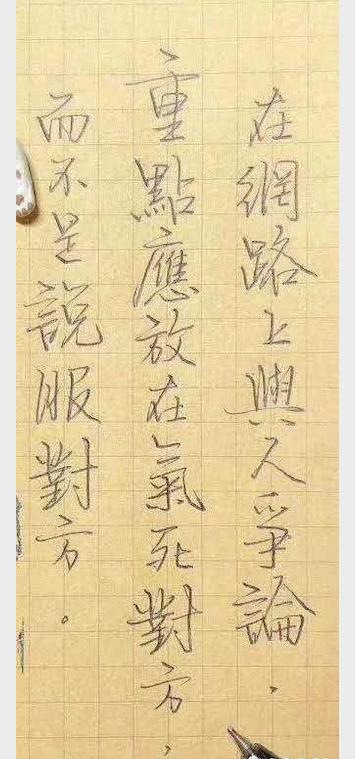 在網路上與人爭論，
重點應放在氣死對方，
而不是說服對方。